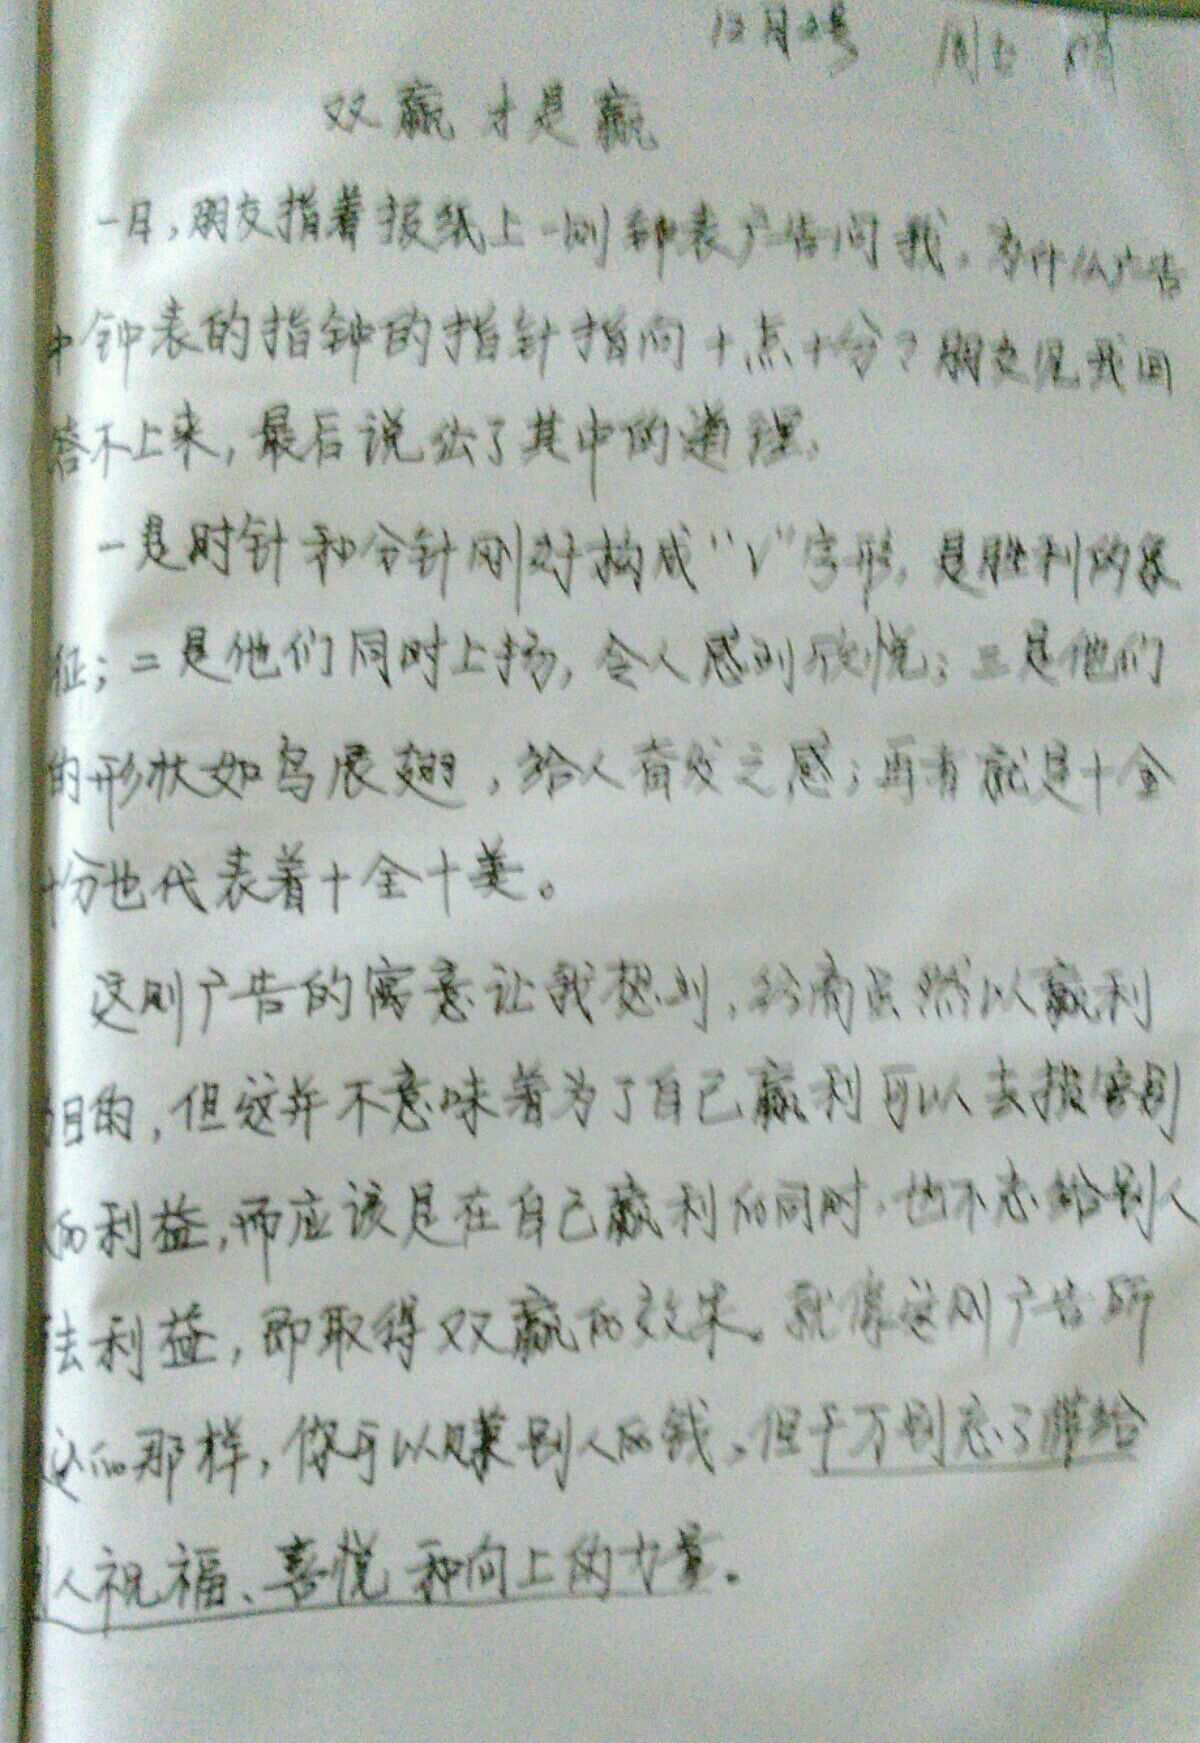 12月2号 周五 晴
双赢才是赢
一日,朋友指着报纸上一则钟表广告问我,为什么广告
中钟表的指钟的指针指向十点十分?朋友见我回
答不上来,最后说出了其中的道理。
一是时针和分针刚好构成“V”字形,是胜利的象
征;二是他们同时上扬,令人感到欣悦;三是他们
的形状如鸟展翅,给人奋发之感;再有就是十全
十分也代表着十全十美。
这则广告的寓意让我想到,经商虽然以赢利
目的,但这并不意味着为了自己赢利可以去损害别
的利益,而应该是在自己赢利的同时,也不忘给别人
法利益,即取得双赢的效果。就像这则广告所
这的那样,你可以赚别人的钱,但千万别忘了带给
别人祝福、喜悦和向上的力量。